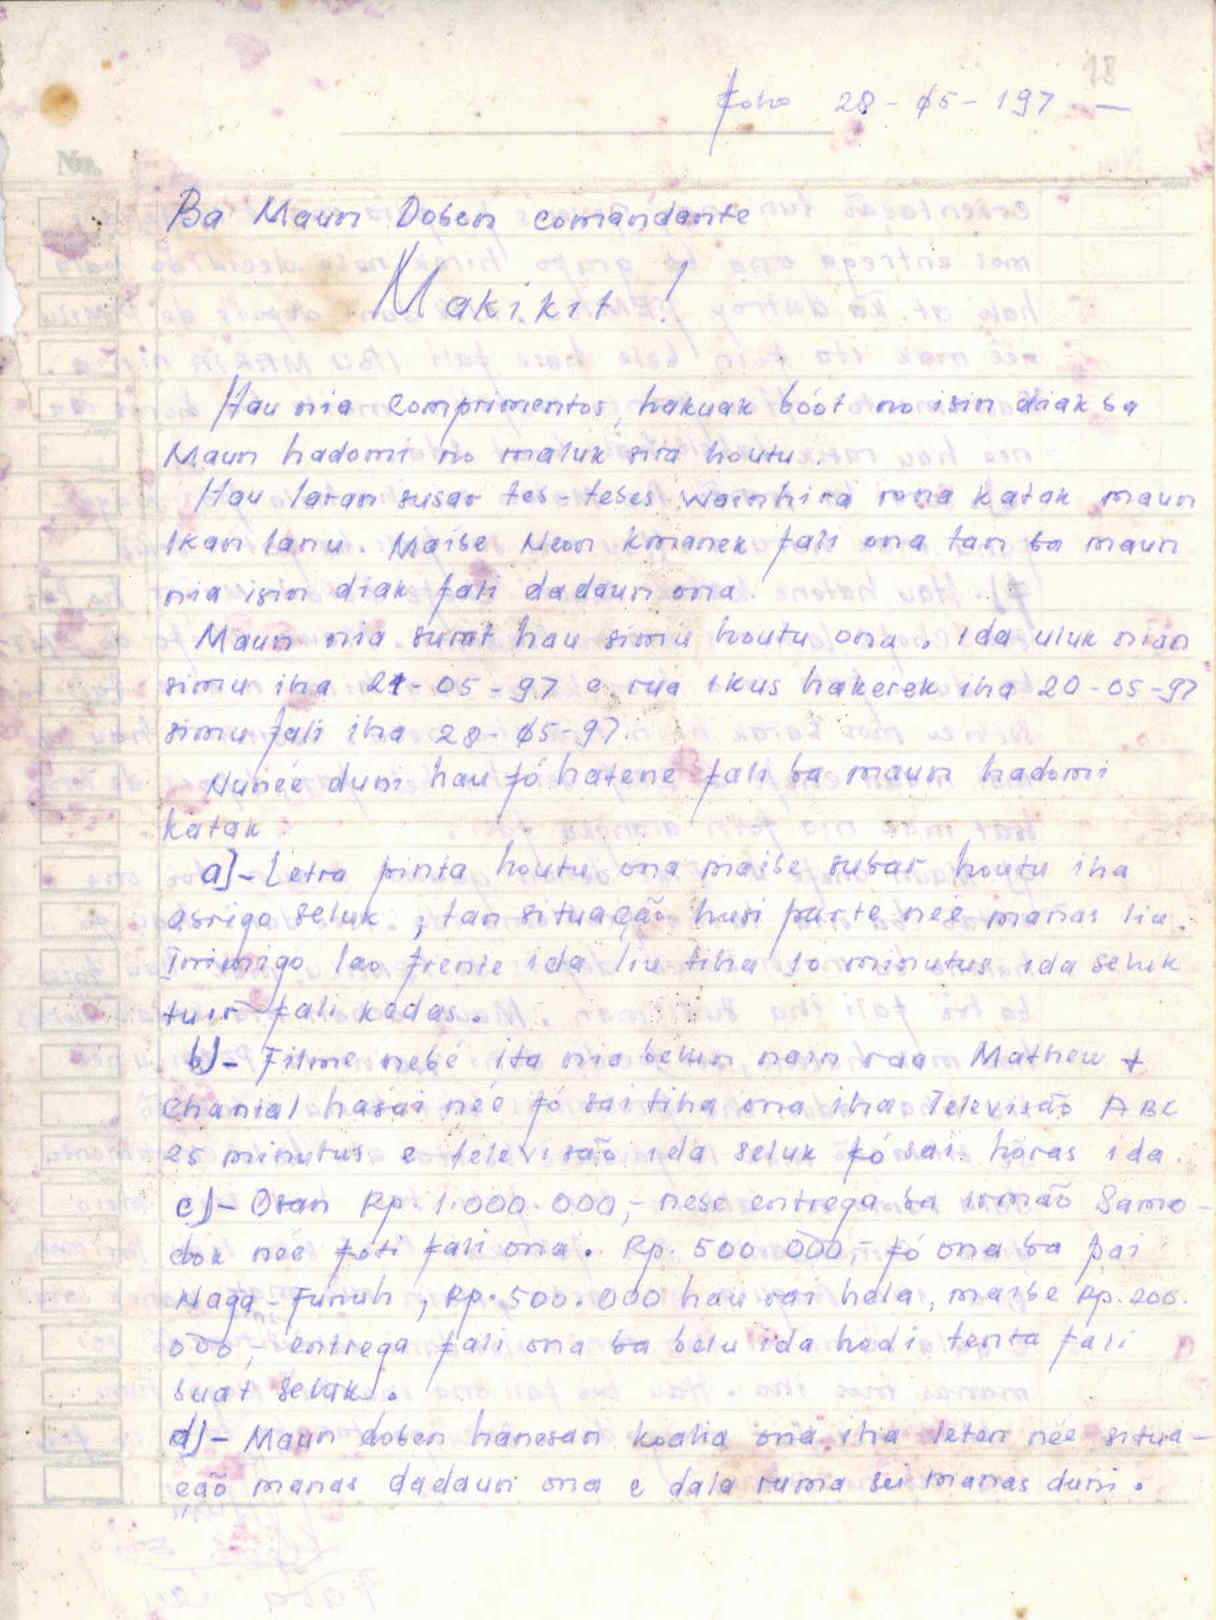 18
Foho 28-05-197 -
No.
Ba Maun Doben comandante
Makikit !
Hau nia comprimentos, hakuak bóot no isin diak ba
Maun hadomi no maluk sira houtu.
Hau laran susar teb-tebes wainhira rona katak maun
Ikan lanu. Maibe Neon kmanek fali ona tan ba maun
nia isin diak fali dadaun ona.
Maun nia surat hau simu houtu ona. Ida uluk nian
simu iha 21-05-97 e rua ikus hakerek iha 20-05-97
simu fali iha 28-05-97.
Nuneé duni hau fó hatene fali ba maun hadomi
katak
a)- Letra pinta houtu ona maibe subar houtu iha
abrigo seluk, tan situação husi parte neé manas liu.
Inimigo lao frente ida liu tiha 10 minutus ida seluk
tuir fali kedas.
b)- Filme nebé ita nia belun, nain rua Mathew +
Chantal hasai neé fó sai tiha ona iha Televisão ABC
25 minutus e televisão ida seluk fó sai horas ida.
c)- Osan Rp. 1.000.000,- nebe entrega ba irmão Samo-
dok neé foti fali ona. Rp. 500.000,- fó ona ba pai
Naga-Funuh, Rp. 500.000 hau rai hela, maibe Rp. 200.
000,- entrega fali ona ba belu ida hodi tenta fali
buat seluk.
d)- Maun doben hanesan koalia ona iha leten neé situa-
ção manas dadaun ona e dala ruma sei manas duni.